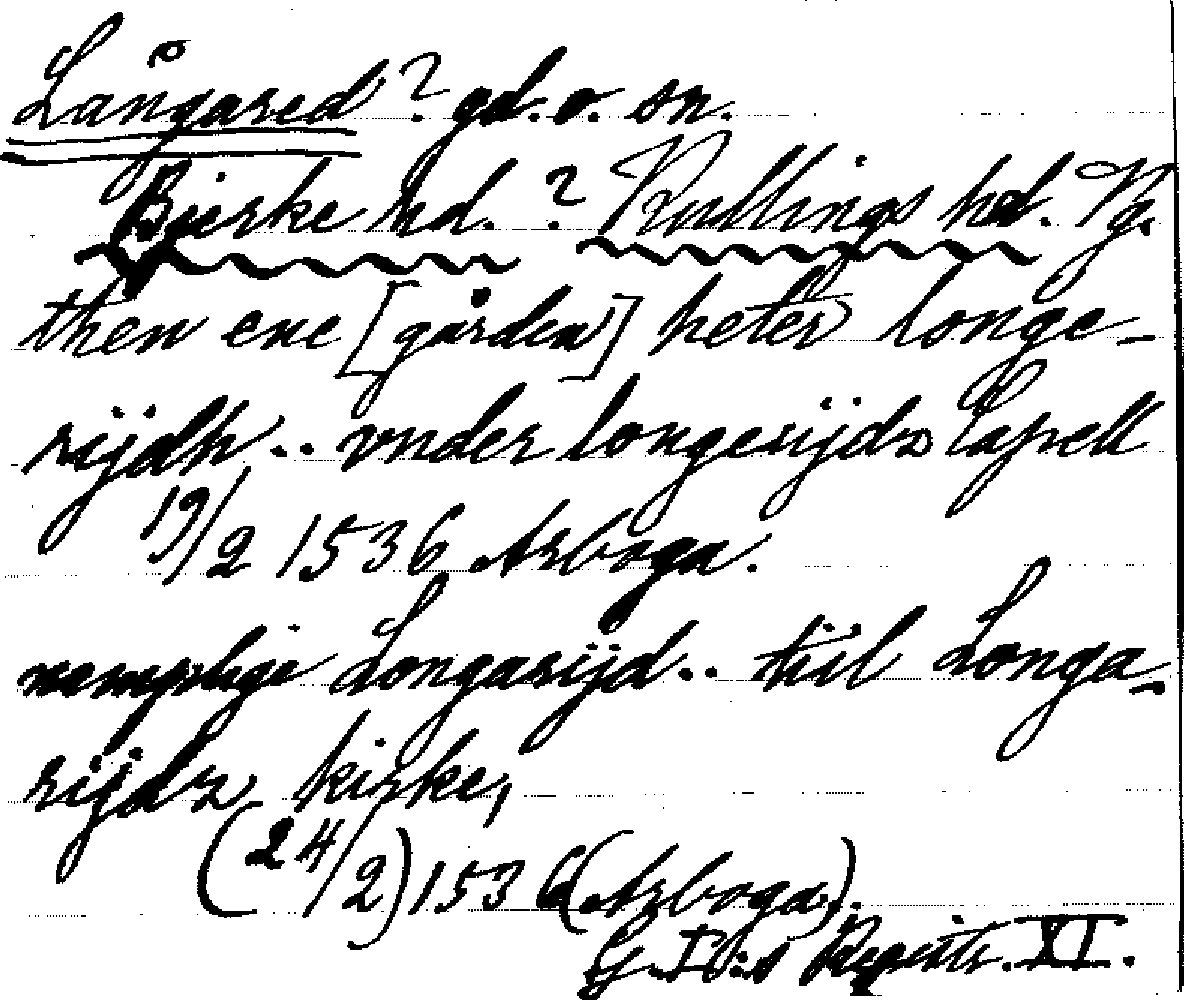 Långared? gd. o. sn.
Bjerke hd. ? Kullings hd. Vg.
then ene [gården] heter longe-
rijdh .. vnder longerijdz Capell
19/2 1536 Arboga.
nemplige Longarijd .. tiil Longa-
rijdz kirke,
(24/2) 1536 (Arboga).
G. I:s Registr. XI.